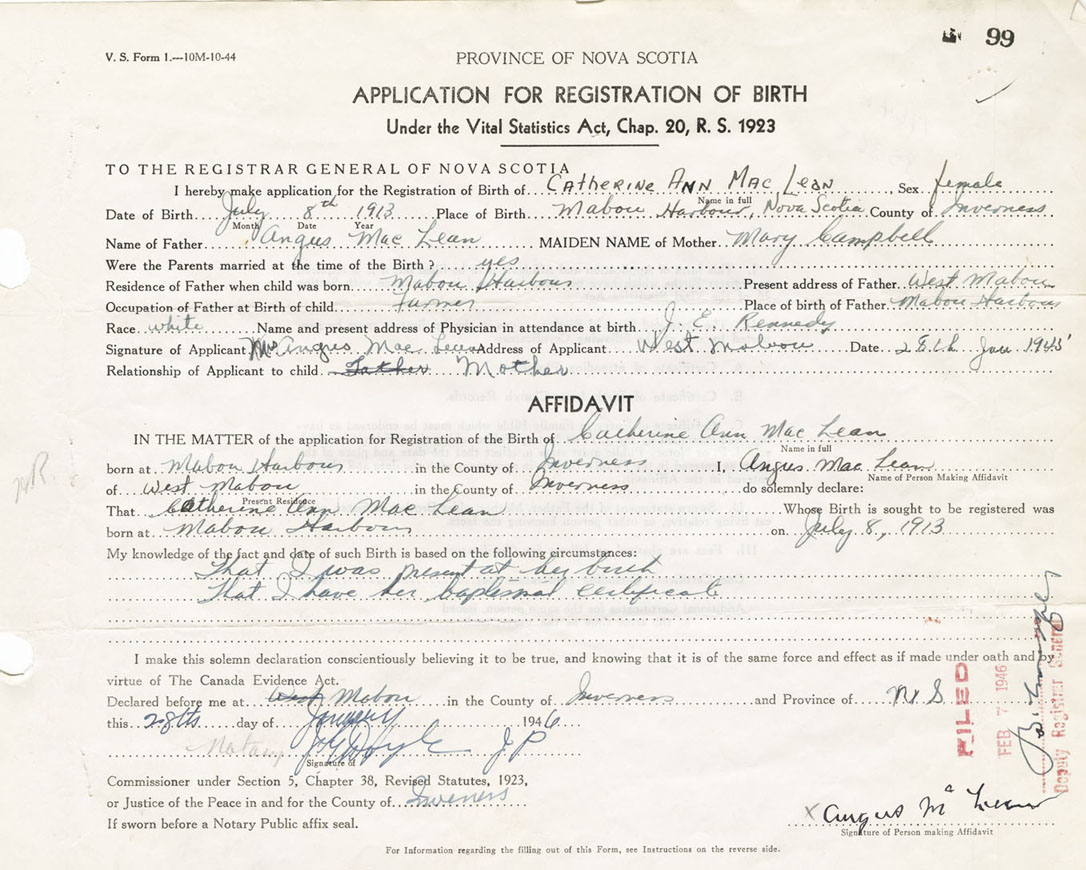 99
V. S. Form 1.---10M-10-44
PROVINCE OF NOVA SCOTIA
APPLICATION FOR REGISTRATION OF BIRTH
Under the Vital Statistics Act, Chap. 20, R. S. 1923
TO THE REGISTRAR GENERAL OF NOVA SCOTIA
I hereby make application for the Registration of Birth of Catherine Ann Mac Lean, Sex female
Name in full
Date of Birth July 8th 1913 Place of Birth Mabou Harbour, Nova Scotia County of Inverness
Month Date Year
Name of Father Angus Mac Lean MAIDEN NAME of Mother Mary Campbell
Were the Parents married at the time of the Birth? yes
Residence of Father when child was born Mabou Harbour Present address of Father West Mabou
Occupation of Father at Birth of child Farmer Place of birth of Father Mabou Harbour
Race white Name and present address of Physician in attendance at birth J. E. Kennedy
Signature of Applicant Mrs Angus Mac Lean Address of Applicant West Mabou Date 28th Jan 1945
Relationship of Applicant to child Father Mother
AFFIDAVIT
IN THE MATTER of the application for Registration of the Birth of Catherine Ann Mac Lean
Name in full
born at Mabou Harbour in the County of Inverness I, Angus Mac Lean
Name of Person Making Affidavit
of West Mabou in the County of Inverness do solemnly declare:
Present Residence
That Catherine Ann Mac Lean Whose Birth is sought to be registered was
born at Mabou Harbour on July 8, 1913
My knowledge of the fact and date of such Birth is based on the following circumstances:
That I was present at her birth
That I have her baptismal certificate
I make this solemn declaration conscientiously believing it to be true, and knowing that it is of the same force and effect as if made under oath and by
virtue of The Canada Evidence Act.
Declared before me at West Mabou in the County of Inverness and Province of N.S
this 28th day of January 1946
Notary J G Doyle J P
Signature of
Commissioner under Section 5, Chapter 38, Revised Statutes, 1923,
or Justice of the Peace in and for the County of Inverness
If sworn before a Notary Public affix seal.
FILED
FEB 7 1946
Deputy Registrar General
X Angus Mac Lean
Signature of Person making Affidavit
For Information regarding the filling out of this Form, see Instructions on the reverse side.